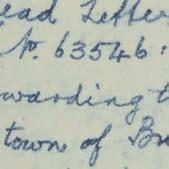 ead Letter
No. 63546:
warding t
town of Br